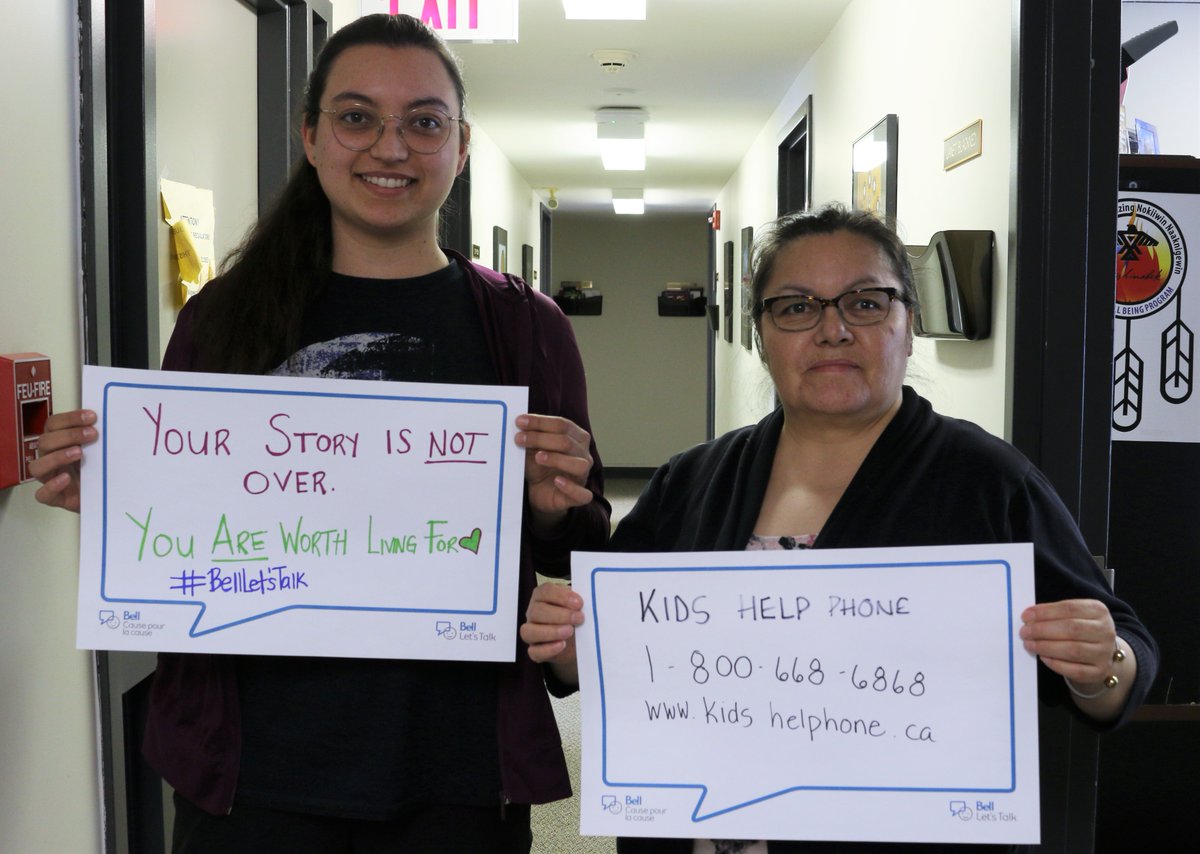 EXIT
FEU-FIRE
ATTENTION!
YOUR STORY IS NOT
OVER.
YOU ARE WORTH LIVING FOR
#BELLLET'STALK
Bell
Cause pour
la cause
Bell
Let's Talk
KIDS HELP PHONE
1-800-668-6868
www.kids helphone.ca
Bell
Cause pour
la cause
Bell
Let's Talk
zing Nokiiwin Naaknigewin
BEING PROGRAM